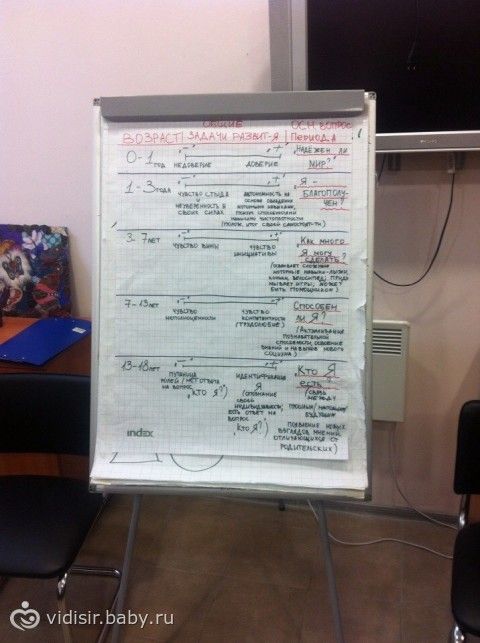 ОБЩИЕ ОСН. ВОПРОС
ВОЗРАСТ ЗАДАЧИ РАЗВИТ-Я ПЕРИОДА
0-1 ГОД "-" "+" "НАДЕЖЕН ЛИ
НЕДОВЕРИЕ ДОВЕРИЕ МИР?"
1-3 ГОДА "-" "+" "Я -
ЧУВСТВО СТЫДА АВТОНОМНОСТЬ НА БЛАГОПОЛУ-
НЕУВЕРЕННОСТЬ В ОСНОВЕ ОВЛАДЕНИЯ ЧЕН?"
СВОИХ СИЛАХ
НАВЫКАМИ
3-7 ЛЕТ "-" "+" "КАК МНОГО
ЧУВСТВО ВИНЫ ЧУВСТВО Я МОГУ
ИНИЦИАТИВЫ СДЕЛАТЬ?"
(ОСВАИВАЕТ СЛОЖНЫЕ
МОТОРНЫЕ НАВЫКИ-ЛЫЖИ,
КОНЬКИ, ВЕЛОСИПЕД; ПРИДУ-
МЫВАЕТ ИГРЫ; МОЖЕТ
БЫТЬ ПОМОЩНИКОМ)
7-13 ЛЕТ "-" "+" "СПОСОБЕН
ЧУВСТВО ЧУВСТВО ЛИ Я?"
НЕПОЛНОЦЕННОСТИ КОМПЕТЕНТНОСТИ
(ТРУДОЛЮБИЕ)
ПОЗНАВАТЕЛЬНОЙ
СПОСОБНОСТИ, ОСВОЕНИЕ
ЗНАНИЙ И НАВЫКОВ НОВОГО
СОЦИУМА)
13-18 ЛЕТ "-" "+" "КТО Я
ПУТАНИЦА ИДЕНТИФИКАЦИЯ ЕСТЬ?"
РОЛЕЙ (НЕТ ОТВЕТА Я (СВЯЗЬ
НА ВОПРОС (ОСОЗНАНИЕ МЕЖДУ
"КТО Я?") СВОЕЙ ПРОШЛЫМ/НАСТОЯЩИМ/
ИНДИВИДУАЛЬНОСТИ, БУДУЩИМ
ЕСТЬ ОТВЕТ НА
ВОПРОС ПОЯВЛЕНИЕ НОВЫХ
"КТО Я?") ВЗГЛЯДОВ, МНЕНИЙ,
ОТЛИЧАЮЩИХСЯ ОТ
РОДИТЕЛЬСКИХ)
index
vidisir.baby.ru